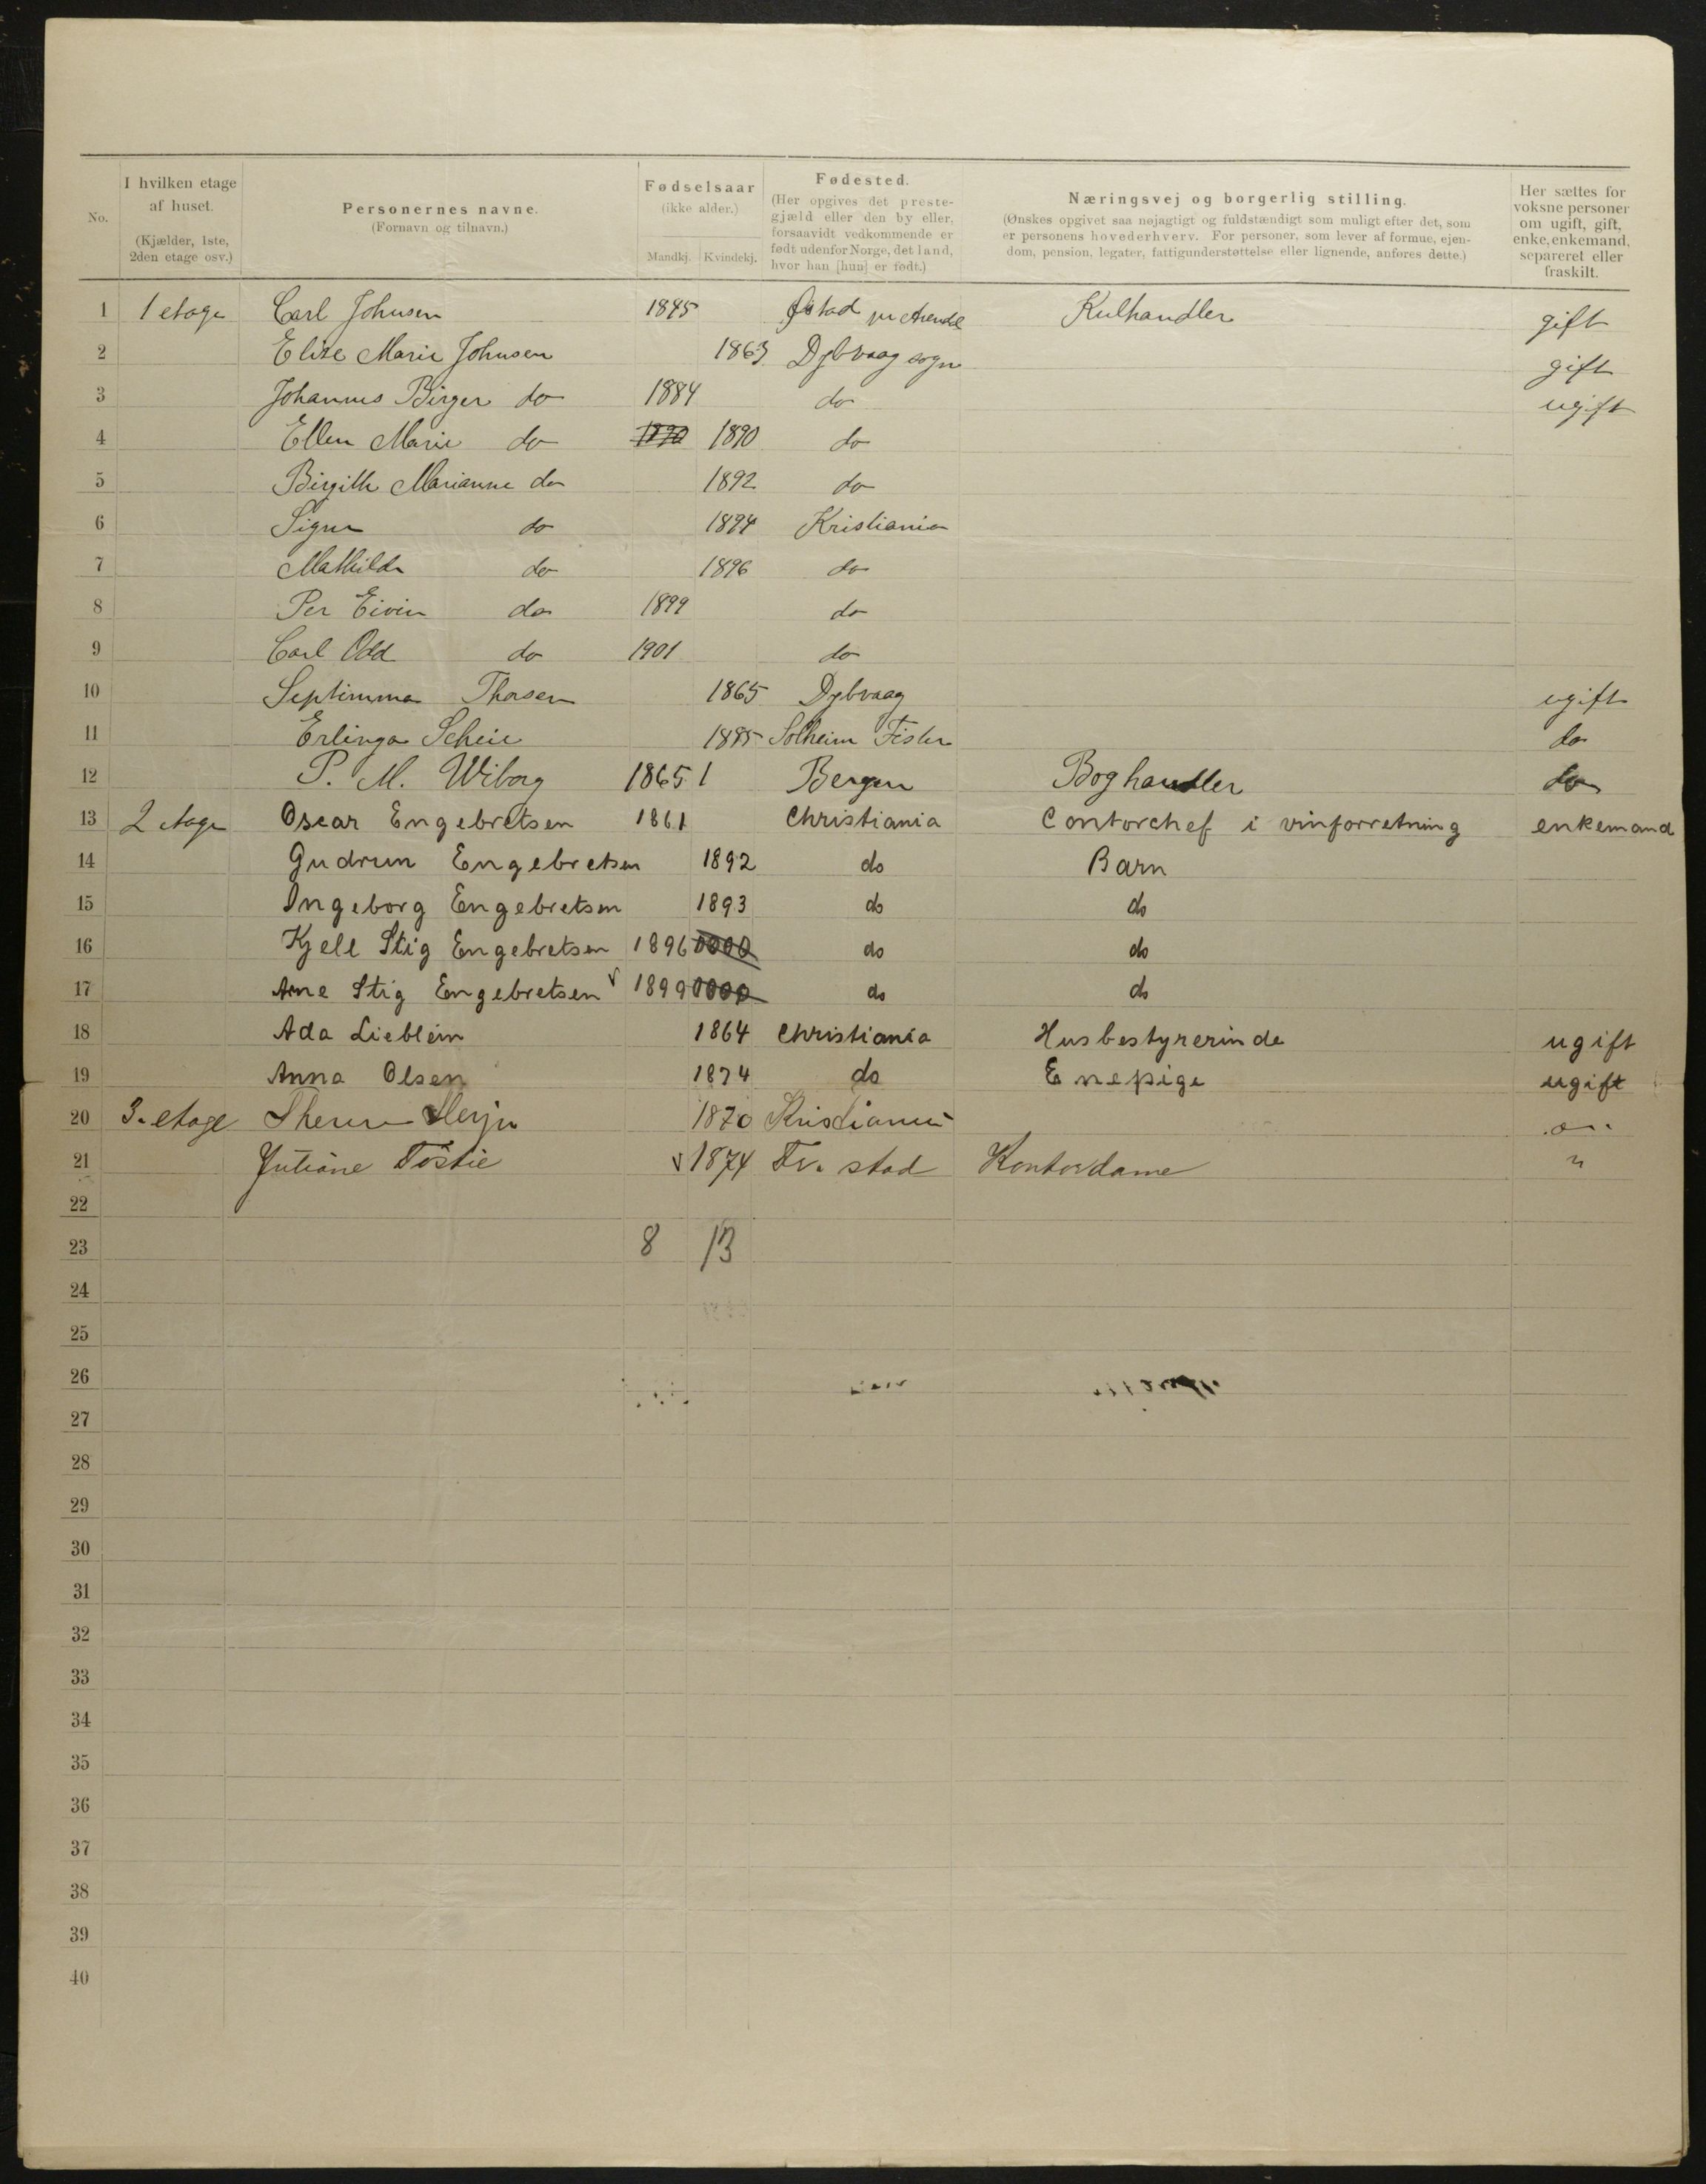 No. | I hvilken etage af huset. (Kjælder, 1ste, 2den etage osv.) | Personernes navne. (Fornavn og tilnavn.) | Fødselsaar (ikke alder.) Mandkj. Kvindekj. | Fødested. (Her opgives det prestegjæld eller den by eller, forsaavidt vedkommende er født udenfor Norge, det land, hvor han [hun] er født.) | Næringsvej og borgerlig stilling. (Ønskes opgivet saa nøjagtigt og fuldstændigt som muligt efter det, som er personens hovederhverv. For personer, som lever af formue, ejendom, pension, legater, fattigunderstøttelse eller lignende, anføres dette.) | Her sættes for voksne personer om ugift, gift, enke, enkemand, separeret eller fraskilt.
1 1 etage Carl Johnsen 1845 Kulhandler gift
2 Elise Marie Johnsen 1863 Dybvaag sogn gift
3 Johannes Birger do 1884 do ugift
4 Ellen Marie do 1890 1890 do
5 Birgith Marianne do 1892 do
6 Signe do 1894 Kristiania
7 Mathilde do 1896 do
8 Per Eivin do 1899 do
9 Carl Odd do 1901 do
10 Septimma Thorsen 1865 Dybvaag ugift
11 Erlinga Scheie 1885 Solheim Fister do
12 P. M. Wiborg 1865 1 Bergen Boghandler do
13 2 etage Oscar Engebretsen 1861 Christiania Contorchef i vinforretning enkemand
14 Gudrun Engebretsen 1892 do Barn
15 Ingeborg Engebretsen 1893 do do
16 Kjell Stig Engebretsen 1896 0000 do do
17 Arne Stig Engebretsen 1899 0000 do do
18 Ada Lieblein 1864 Christiania Husbestyrerinde ugift
19 Anna Olsen 1874 do Enepige ugift
20 3. etage 1870 Kristiania
21 Juliane Tostie 1874 Fr. stad Kontordame "
22
23 8 13
24
25
26
27
28
29
30
31
32
33
34
35
36
37
38
39
40